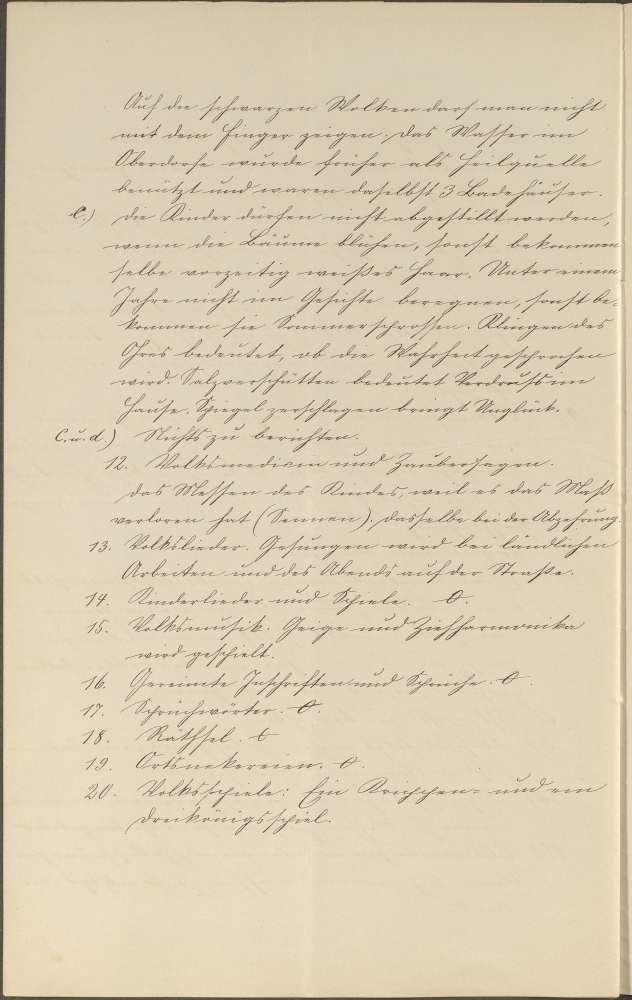 Auf die schwarzen Wolken darf man nicht
mit dem Finger zeigen. Das Wasser im
Oberdorfe wurde früher als Heilquelle
benützt und waren daselbst 3 Badehäuser.
C.) Die Kinder dürfen nicht abgestillt werden,
wenn die Bäume blühen, sonst bekommen
selbe vorzeitig weißes Haar. Unter einem
Jahre nicht im Gesichte beregnen, sonst be-
kommen sie Sommersprossen. Klingen des
Ohres bedeutet, ob die Wahrheit gesprochen
wird. Salzverschütten bedeutet Verdruß im
Hause. Spiegel zerschlagen bringt Unglück.
C. u. d.) Nichts zu berichten.
12. Volksmedicin und Zaubersagen.
Das Messen des Kindes, weil es das Maß
verloren hat (Sennen). Dasselbe bei der Abzehrung.
13. Volkslieder. Gesungen wird bei ländlichen
Arbeiten und des Abends auf der Straße.
14. Kinderlieder und Spiele. 0.
15. Volksmusik. Geige und Ziehharmonika
wird gespielt.
16. Gereimte Inschriften und Sprüche. 0.
17. Sprüchwörter. 0.
18. Räthsel. 0
19. Ortsnekereien. 0.
20. Volksspiele: Ein Krippen- und ein
Dreikönigsspiel.